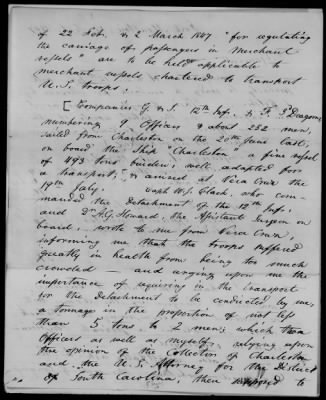 of 22 Feb. & 2 March 1847 "for regulating
the carriage of passengers in Merchant
vessels" are to be held applicable to
merchant vessels chartered to transport
U.S. troops.
[Companies G. & I. 12th Inf. & F. 3d Dragoons,
numbering 9 Officers & about 252 men,
sailed from Charleston on the 20th June last,
on board the Ship "Charleston", a fine vessel
of 493 tons burden; well adapted for
a transport; & arrived at Vera Cruz the
19th July. Capt W. S. Clack, who com-
manded the Detachment of the 12th Inf.,
and Dr. Howard, the Assistant Surgeon on
board, wrote to me from Vera Cruz,
informing me that the troops suffered
greatly in health from being too much
crowded – and urging upon me the
importance of requiring in the transport
for the Detachment to be conducted by me,
a tonnage in the proportion of not less
than 5 tons to 2 men; which two
Officers as well as myself, relying upon
the opinion of the Collector of Charleston
and the U.S. Attorney for the District
of South Carolina, then supposed to